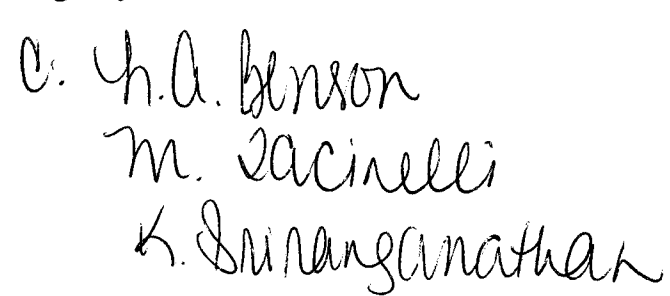 C. h.A. Benson
M. Zacinelli
K. Sriranganathan